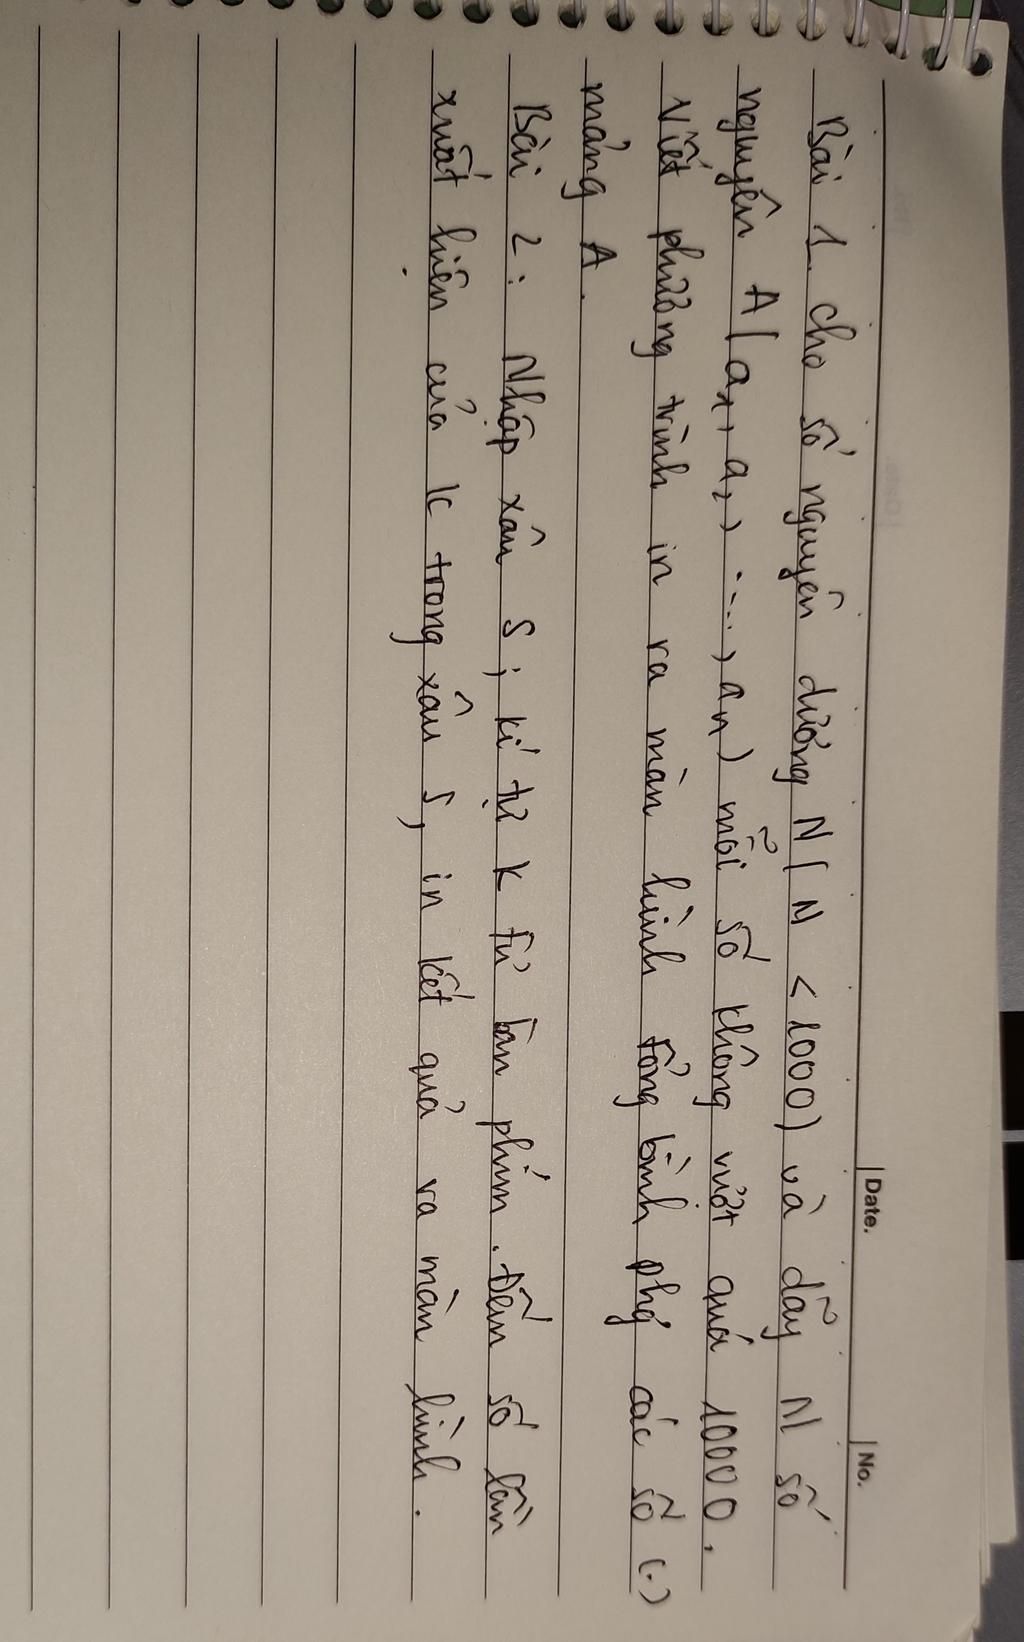 Date. No.
Bài 1. cho số nguyên dương N ( N < 1000) và dãy N số
nguyên A ( a1, a2, ...., an) mỗi số không vượt quá 10000.
Viết phương trình in ra màn hình tổng bình phg các số (.)
mảng A.
Bài 2: Nhập xâu S; kí tự K từ bàn phím. Đếm số lần
xuất hiện của K trong xâu S, in kết quả ra màn hình.